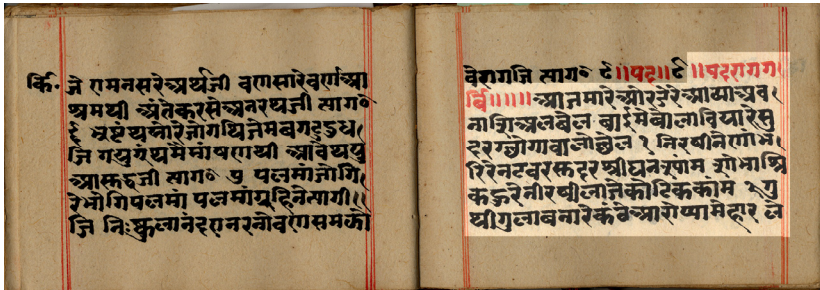 र्कि. जे एमनसरेअर्थजी वणसोरेवर्णआ
श्रमथी अंतेकरसेअनरथजी त्याग॰
६ भ्रष्टंथयोरेजोगथिजेमबगडुदुध।
जि गयुघृंथमैमांषणथी आपेथयु
आसुद्धजी त्याग॰ ७ पलमांजोगि
रेभोगिपलमां पलमांगृहिनेत्यागी।
जि निःस्कुलानंदएनरनोवणसमजो
वैरागजि त्याग॰ ८ ॥पद॥८ ॥पदरागगर
र्बि॥॥॥ आजमारेओरडेरेआव्याअव
नाशिअलबेल बाईमेबोलावियारेसु
दरछोगावालोछेल १ निरषीनेणांभ
रिरेनटवरसुंदरश्रीघनश्याम शोभाशि
कहुरेनीरषीलाजेकोटिककांम २ गु
थीगुलाबनारेकंठेआरोप्यामेहार ले